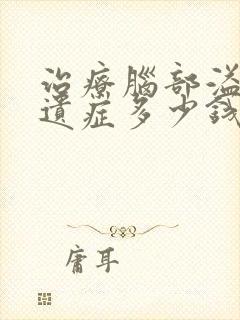 治療腦部溢
遺症多少錢
庸耳